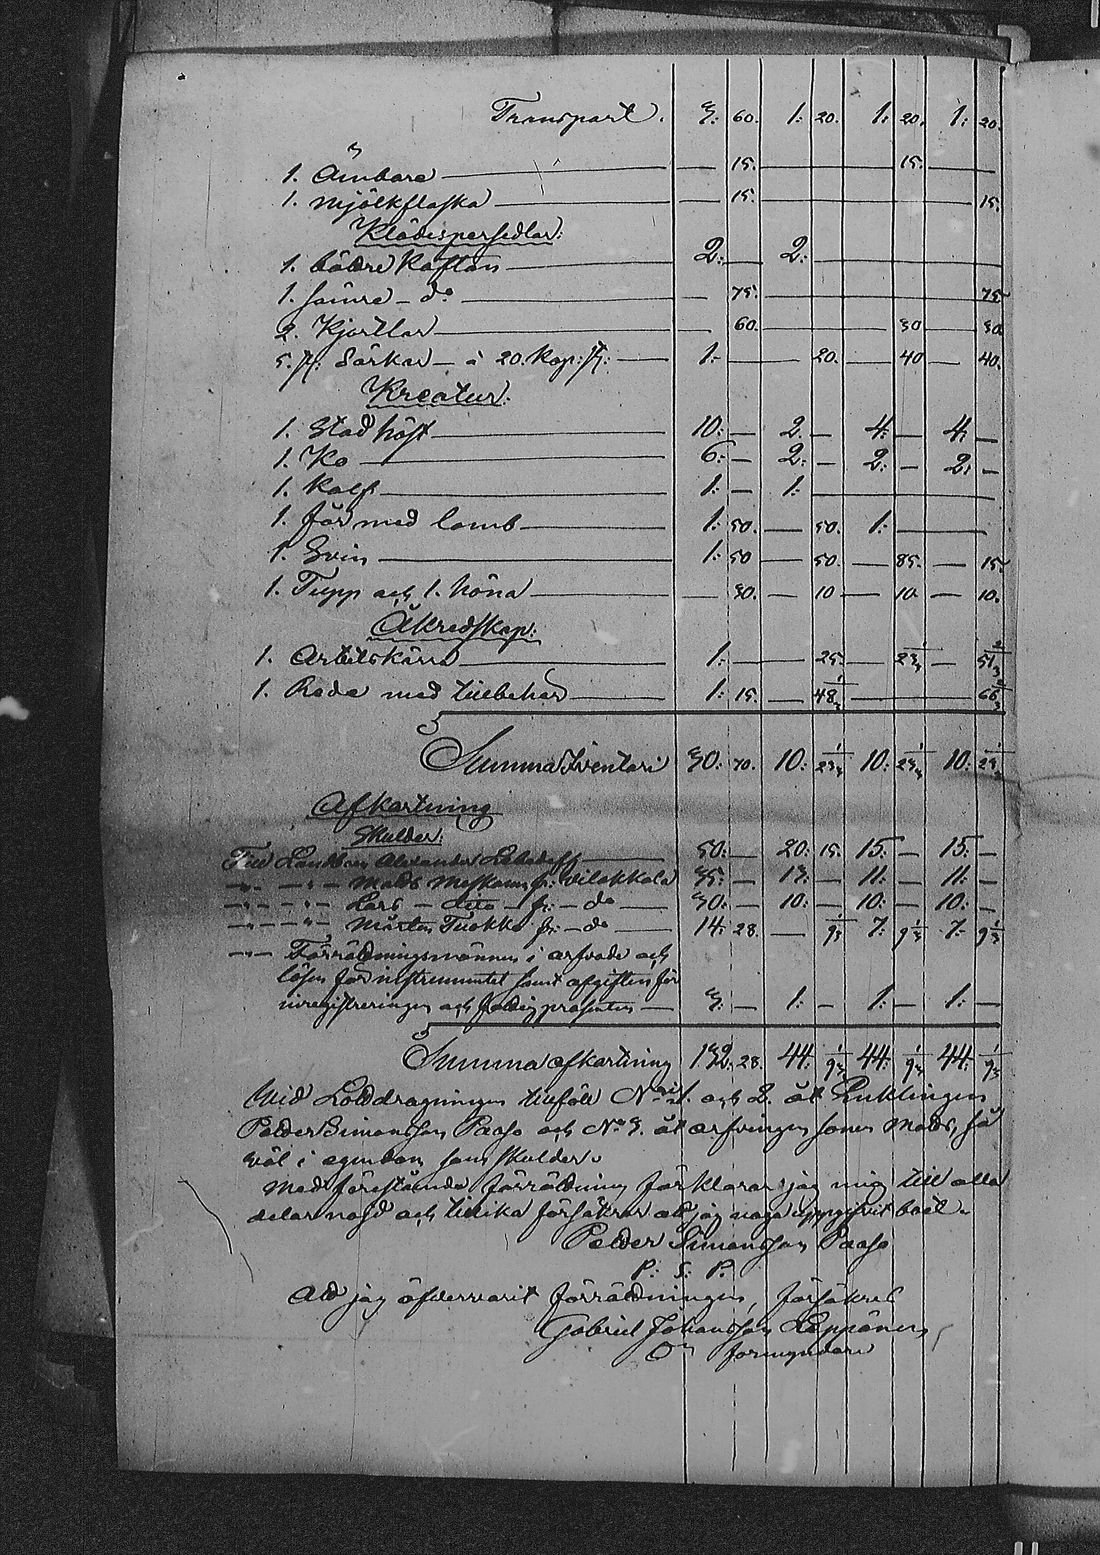 Transport. 3: 60. 1: 20. 1: 20. 1: 20.
1. Ämbare — 15. — 15. —
1. Mjölkflaska — 15. — 15.
Klädespersedlar:
1. bättre Kaftan — 2: — 2: —
1. sämre — do — 75. — 75
2. Kjortlar — 60. — 30 — 30.
5. st: Särkar — à 20. Kop: st: — 1: — 20. — 40 — 40.
Kreatur:
1. Stod häst — 10: — 2. — 4: — 4. —
1. Ko — 6: — 2: — 2: — 2: —
1. Kalf — 1: — 1: —
1. får med lamb — 1: 50. — 50. 1: —
1. Svin — 1: 50 — 50. — 85. — 15.
1. Tupp och 1. höna — 30. — 10 — 10. — 10.
Åkredskap:
1. Arbetskärra — 1: — 25. — 23 1/3 — 51 2/3
1. Reda med tillbehör — 1: 15. — 48 1/3 — 66 2/3
Summa Inventari 30: 70. 10: 23 1/3 10: 23 1/3 10: 23 1/3
Afkortning
Skulder:
Till Landbon Alexander Lebedeff — 50: — 20: 15. 15: — 15: —
— " — " — Mats fr: Vilakkala 35: — 13: — 11: — 11: —
— " — " — Lars — dito — fr: — do — 30: — 10: — 10: — 10: —
— " — " — Mårten Tuokko fr: — do — 14: 28. — 9 1/3 7: 9 1/3 7: 9 1/3
— " — Förrättningsmännen i arfvode och
lösen för instrumentet samt afgiften för
inregistreringen och — 3: — 1: — 1: — 1: —
Summa afkortning 132: 28. 44: 9 1/3 44: 9 1/3 44: 9 1/3
Wid Lottdragningen tillföll No 1. och 2. åt Enklingen
Petter Simonsson Paaso och No 3. åt arfvingen sonen Mats, så
väl i egendom som skulder.
Med förestående förrättning förklarar jag mig till alla
delar nöjd och tillika försäkrar att jag noga uppgifvit boet.
Petter Simonsson Paaso
P: S: P.
Att jag öfvervarit förrättningen, försäkrar
Gabriel Johansson Leppänen
förmyndare